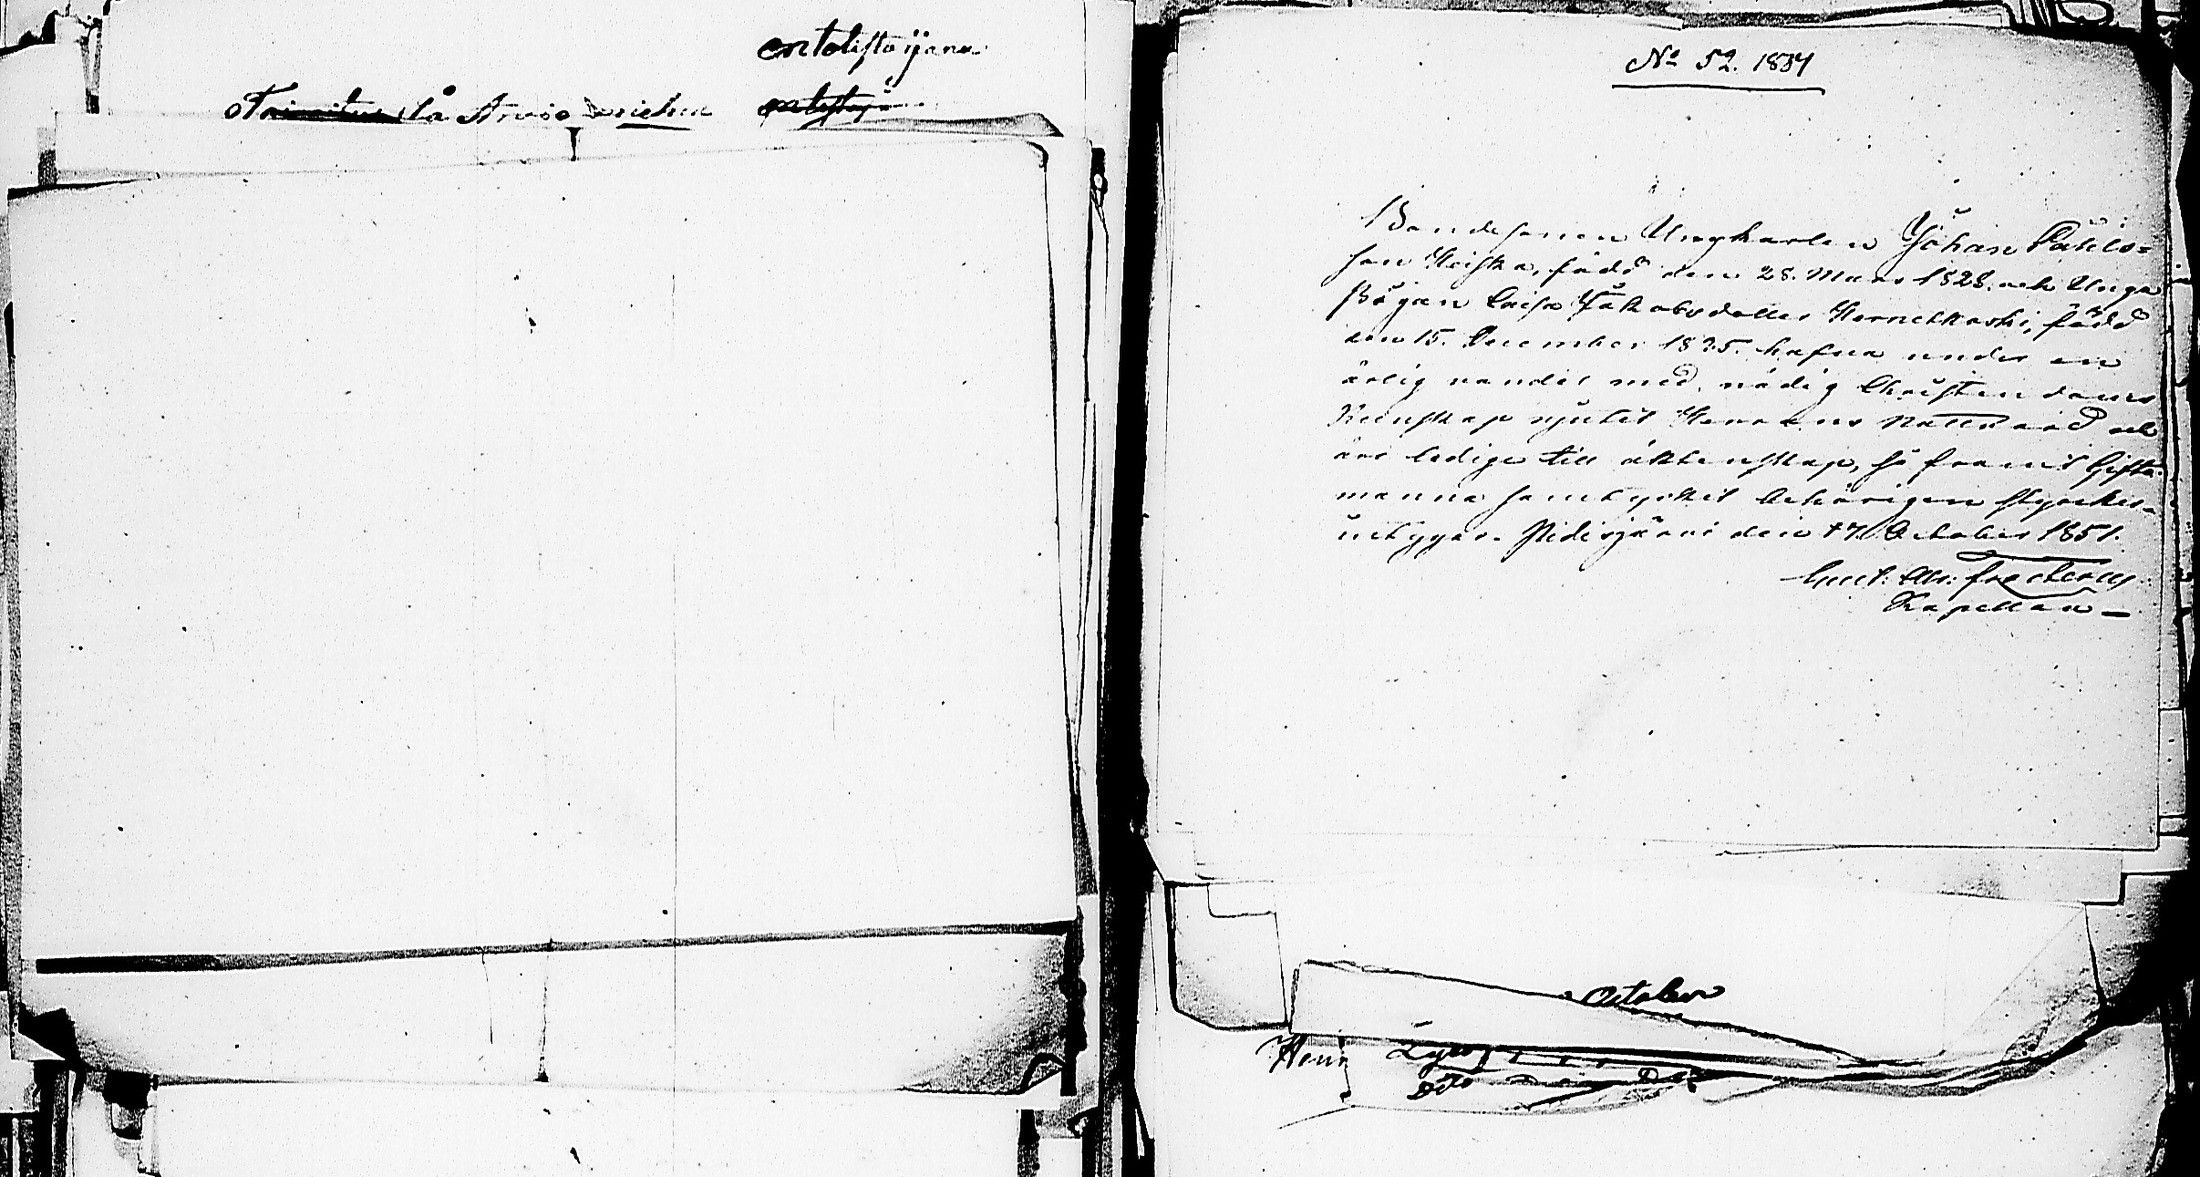 entolistoijana
Arvio
No 52. 1834
Bondesonen Ungkarlen Johan Påhls-
son Heiska, född den 28. Mars 1828. och Unga
Pigan Caisa Jakobsdotter Hernetkoski, född
den 15. December 1835. hafva under en
ärlig vandel med nödig Christendoms
Kunskap njutit Herrans Nattvard och
äro ledige till äktenskap, så framt Gifto-
manna samtycket behörigen styrkes.
intygar. Pidisjärvi den 17. October 1851.
Kapellan
October
Henr